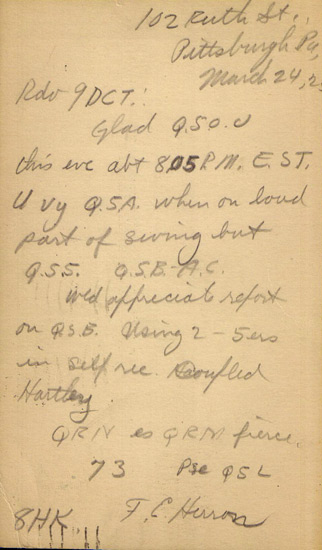 102 Ruth St.,
Pittsburgh Pa,
March 24, 2
Rdo 9DCT.:
Glad QSO U
this eve abt 8.05 P.M. E.S.T.
U vy Q.S.A. when on loud
part of swing but
Q.S.S. Q.S.B.-A.C.
wld appreciate report
on Q.S.B. Using 2-5ers
in self rec. Coupled
Hartley.
QRN es QRM fierce.
73 Pse QSL
8HK F. C. Herron